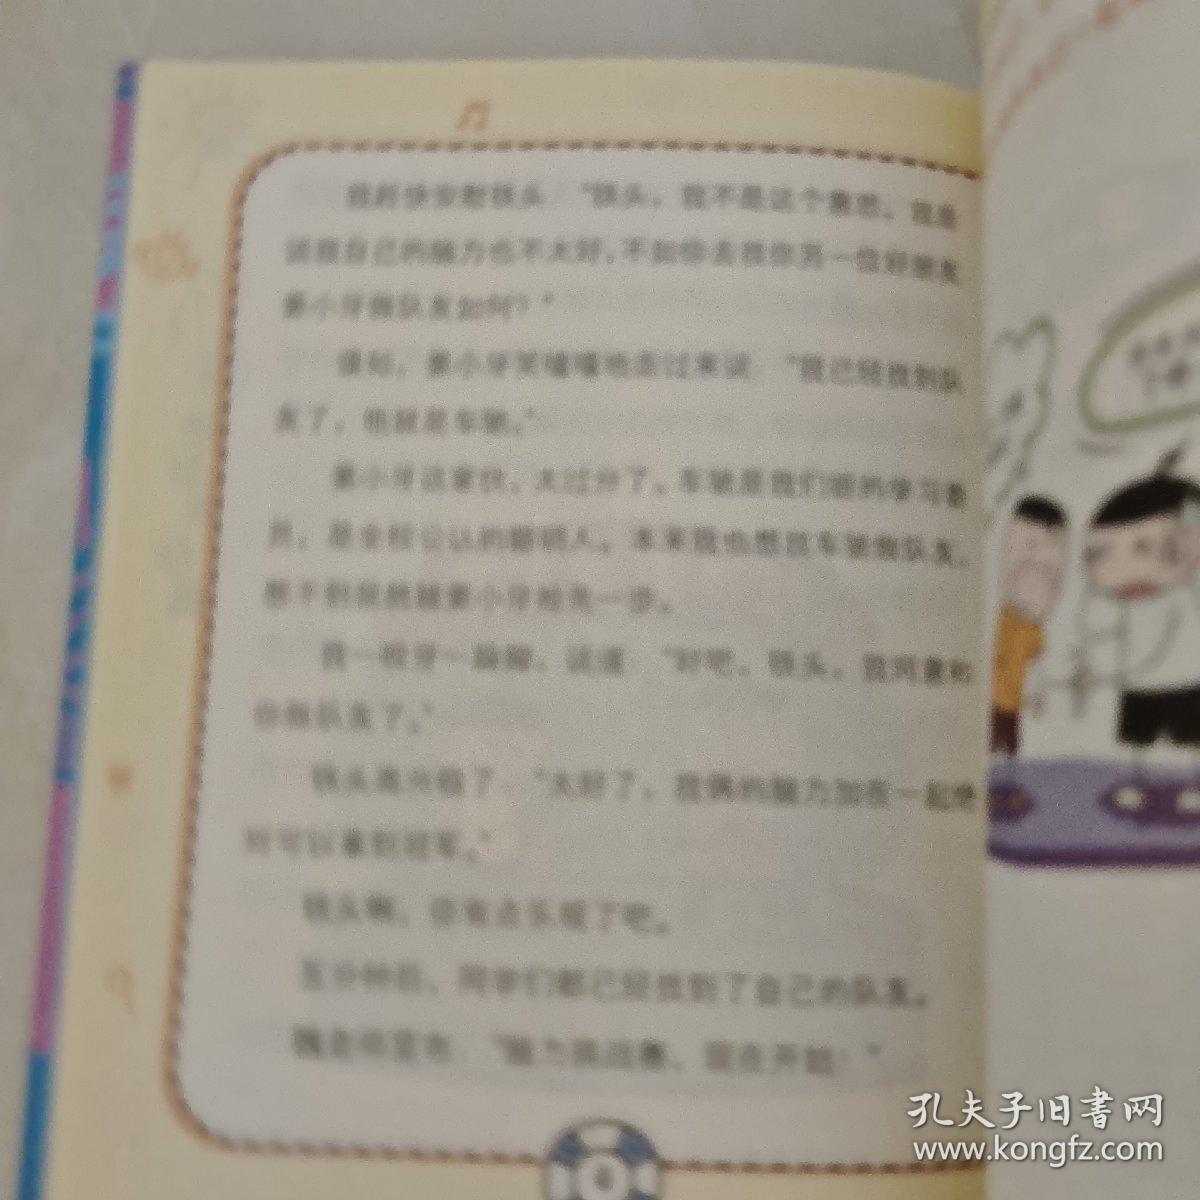 我赶快安慰铁头:“铁头,我不是这个意思,我是
说我自己的脑力也不太好,不如你去找你另一位好朋友
姜小牙做队友如何?”
谁知,姜小牙笑嘻嘻地走过来说:“我已经找到队
友了,他就是车驰。”
姜小牙这家伙,太过分了。车驰是我们班的学习委
员,是全校公认的聪明人。本来我也想找车驰做队友,
想不到竟然被姜小牙抢先一步。
我一咬牙一跺脚,说道:“好吧,铁头,我同意和
你做队友了。”
铁头高兴极了:“太好了,我俩的脑力加在一起绝
对可以拿到冠军。”
铁头啊,你有点乐观了吧。
五分钟后,同学们都已经找到了自己的队友。
魏老师宣布:“脑力挑战赛,现在开始!”
孔夫子旧書网
www.kongfz.com